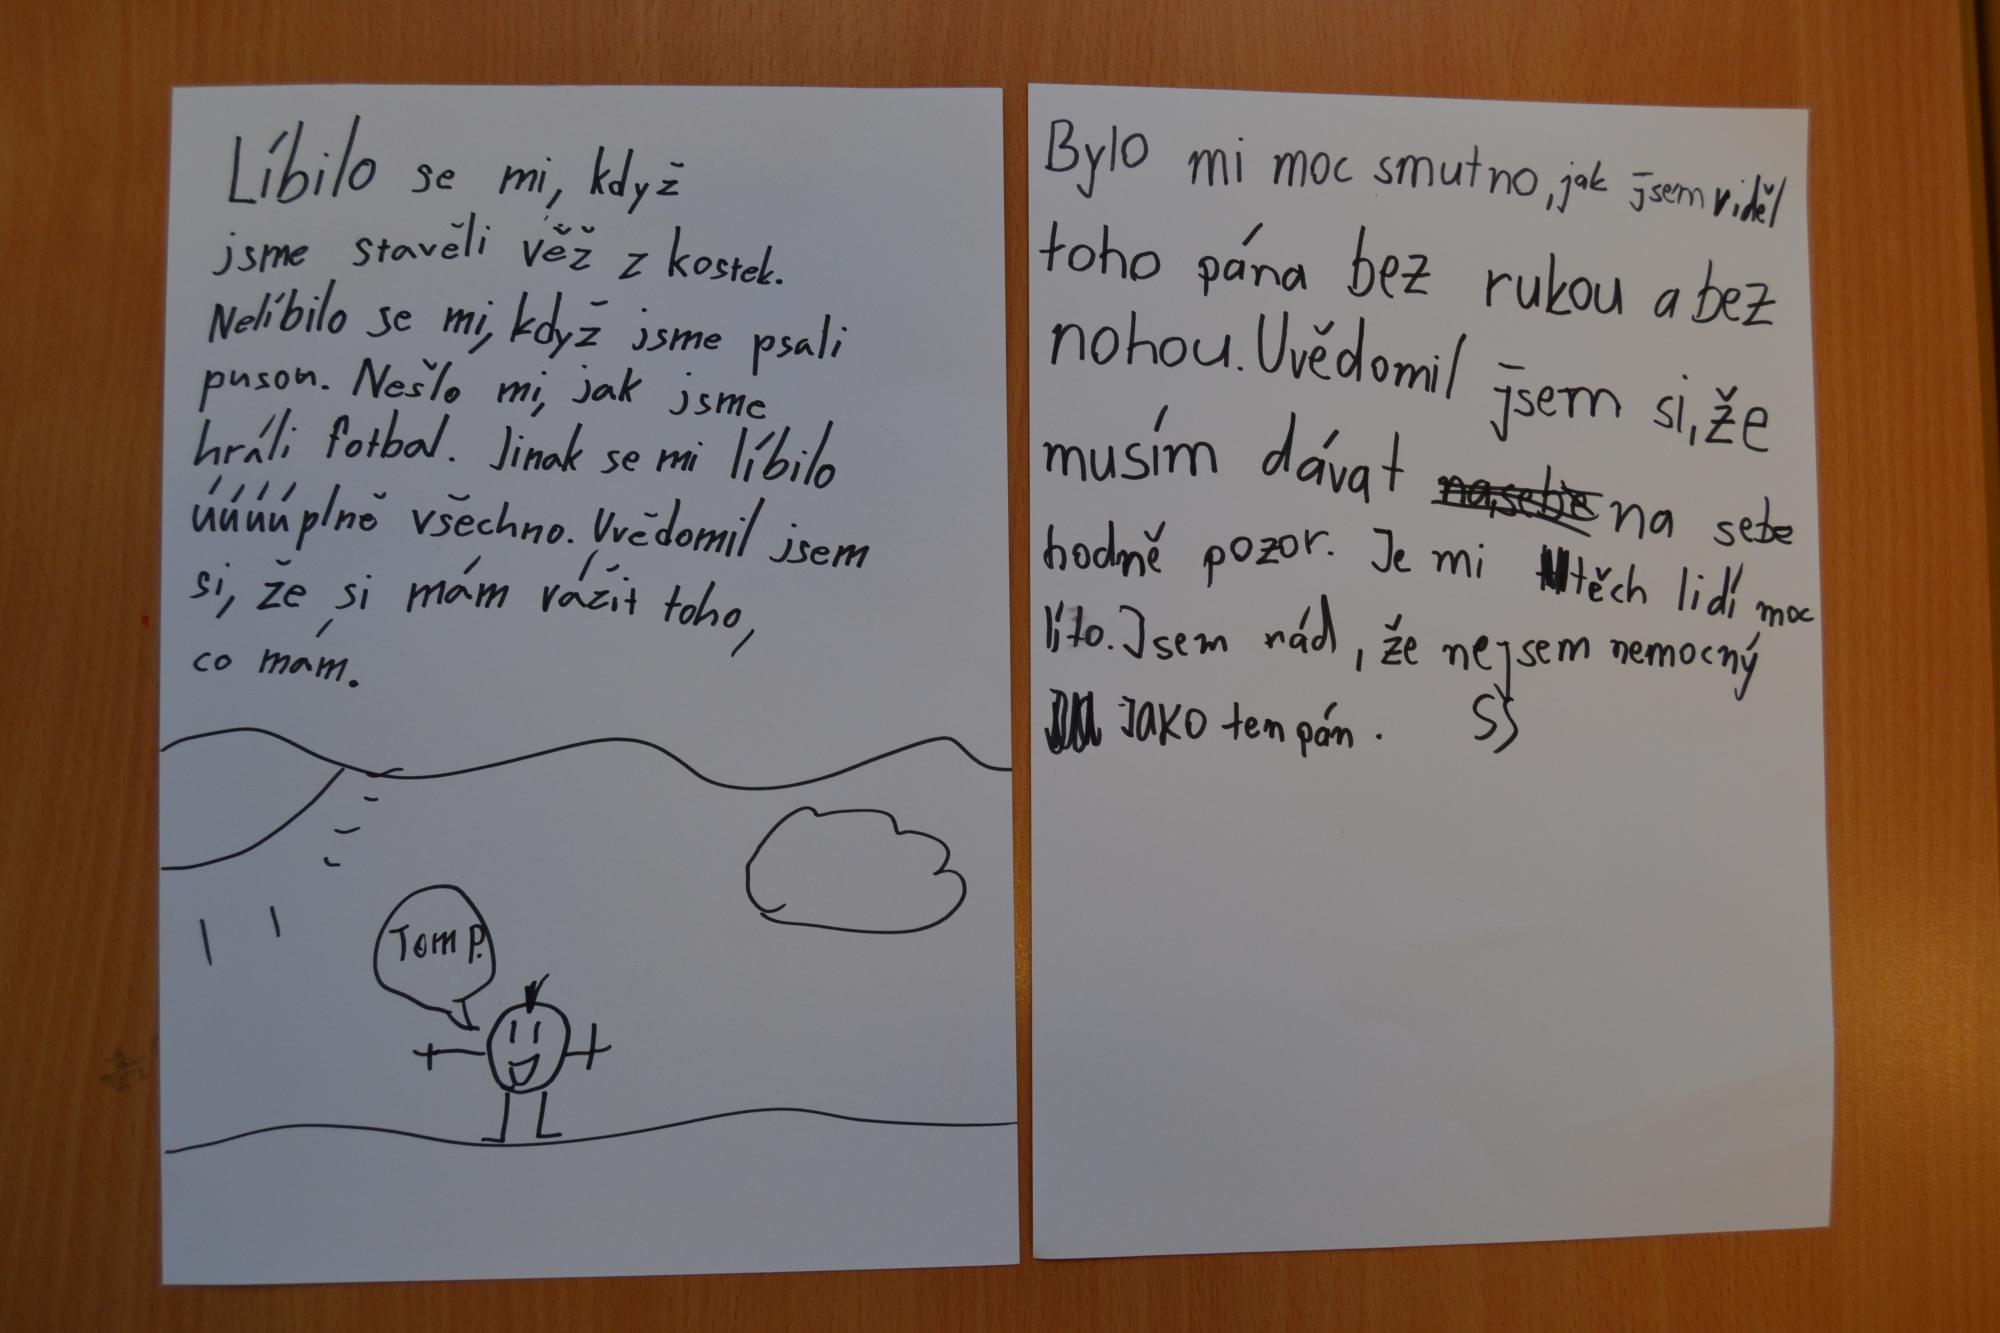 Líbilo se mi, když
jsme stavěli věž z kostek.
Nelíbilo se mi, když jsme psali
pusou. Nešlo mi, jak jsme
hráli fotbal. Jinak se mi líbilo
úúúúplně všechno. Uvědomil jsem
si, že si mám vážit toho,
co mám.
Tom P.
Bylo mi moc smutno, jak jsem viděl
toho pána bez rukou a bez
nohou. Uvědomil jsem si, že
musím dávat na sebe
hodně pozor. Je mi těch lidí moc
líto. Jsem rád, že nejsem nemocný
jako ten pán. SŠ